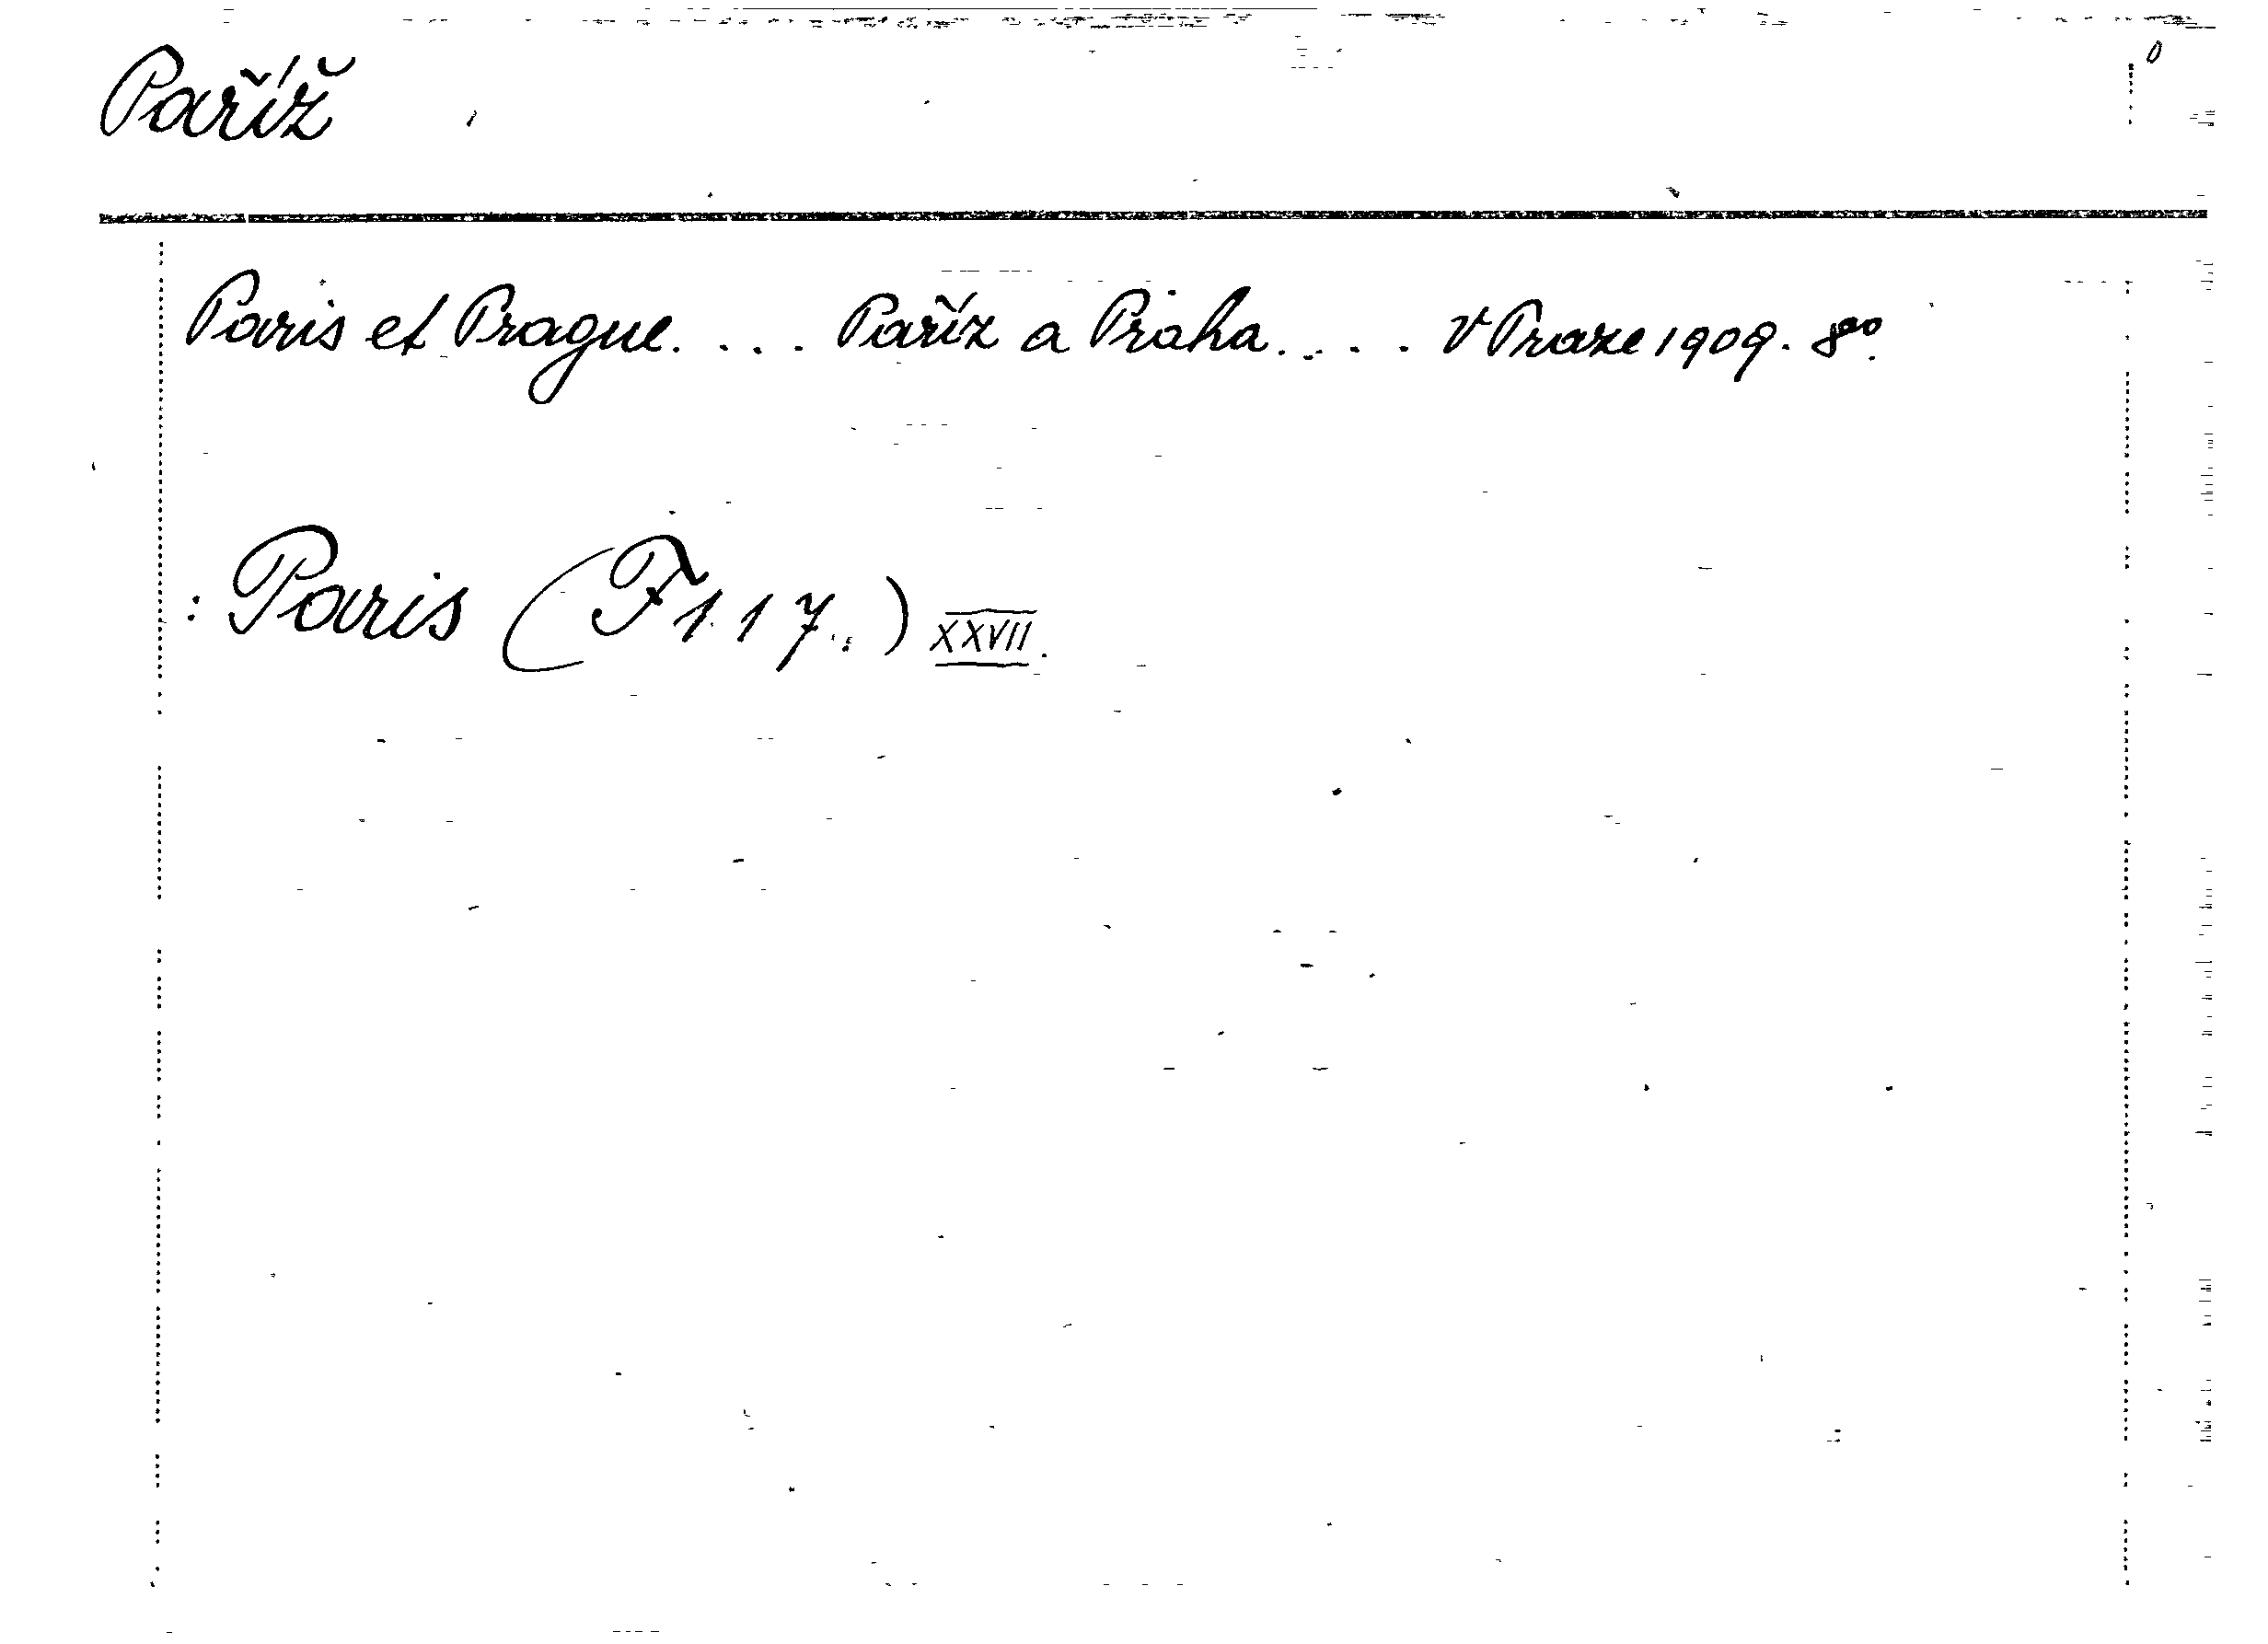 Paříž
Paris et Prague. . . . Paříz a Praha. . . . V Praze 1909. 8°.
: Paris (F 1. 17.) XXVII.